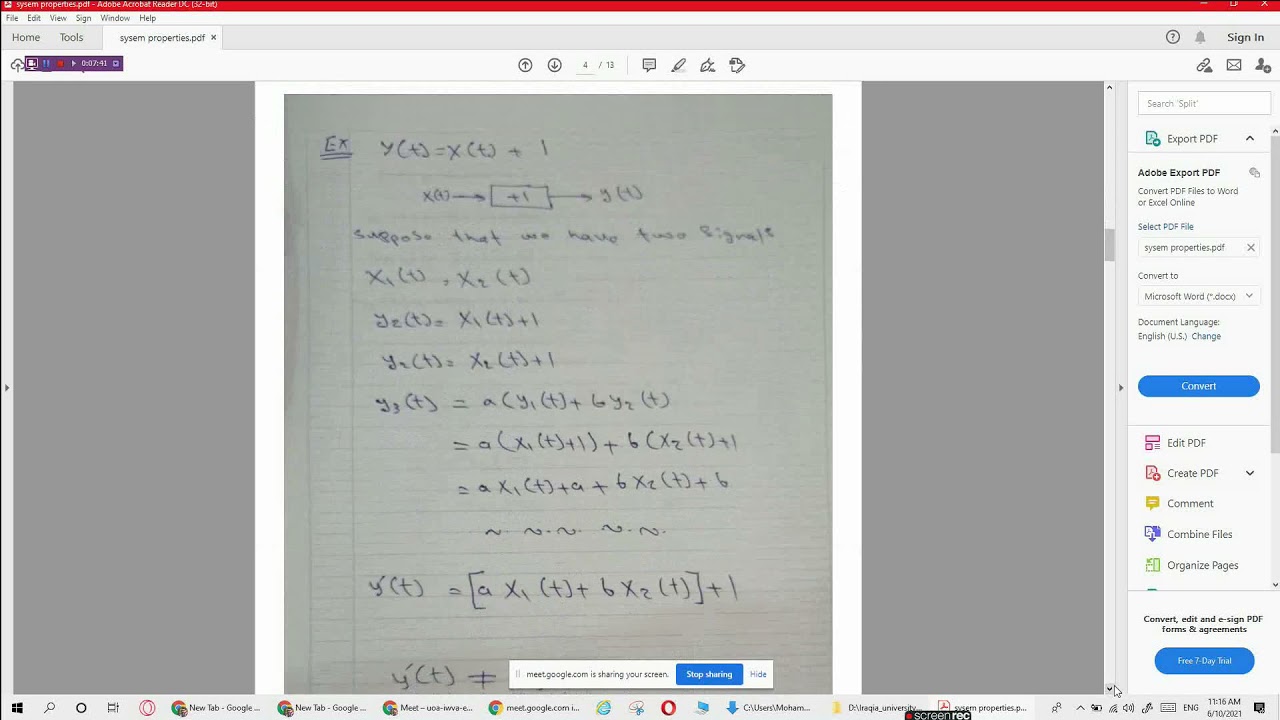 sysem properties.pdf - Adobe Acrobat Reader DC (32-bit)
File Edit View Sign Window Help
Home Tools sysem properties.pdf × Sign In
0:07:41 4 / 13
Ex y(t)=x(t) + 1
x(t) → +1 → y(t)
suppose that we have two signals
x₁(t) , x₂(t)
y₂(t)= x₁(t)+1
y₂(t)= x₂(t)+1
y₃(t) = a(y₁(t)+ b y₂(t)
= a(x₁(t)+1)+ b(x₂(t)+1
= a x₁(t)+a + b x₂(t)+ b
y'(t) = [a x₁(t)+ b x₂(t)]+1
y'(t) ≠
Search 'Split'
Export PDF
Adobe Export PDF
Convert PDF Files to Word
or Excel Online
Select PDF File
sysem properties.pdf ×
Convert to
Microsoft Word (*.docx)
Document Language:
English (U.S.) Change
Convert
Edit PDF
Create PDF
Comment
Combine Files
Organize Pages
Convert, edit and e-sign PDF
forms & agreements
Free 7-Day Trial
meet.google.com is sharing your screen. Stop sharing Hide
New Tab - Google ... New Tab - Google ... Meet – uoa-iwva-e... meet.google.com i... C:\Users\Moham... D:\Iraqia_university... sysem properties.p... ENG 11:16 AM
6/10/2021
screenrec